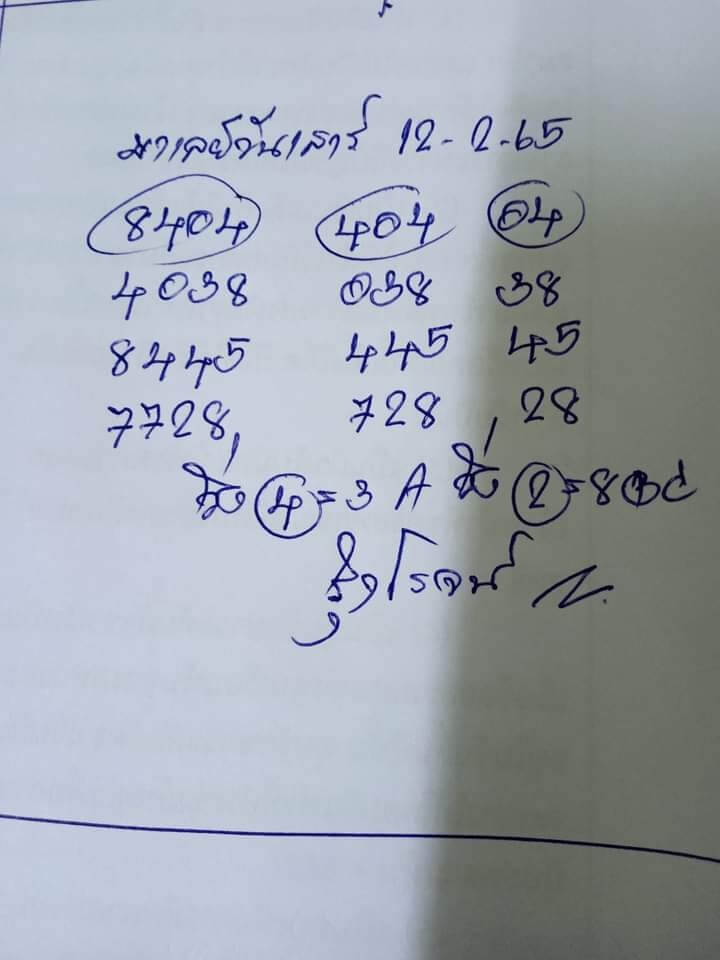 มาเลย์วันเสาร์ 12-2-65
8404 404 04
4038 038 38
8445 445 45
7728 728 28
4=3 A 2=8
รุ่งโรจน์